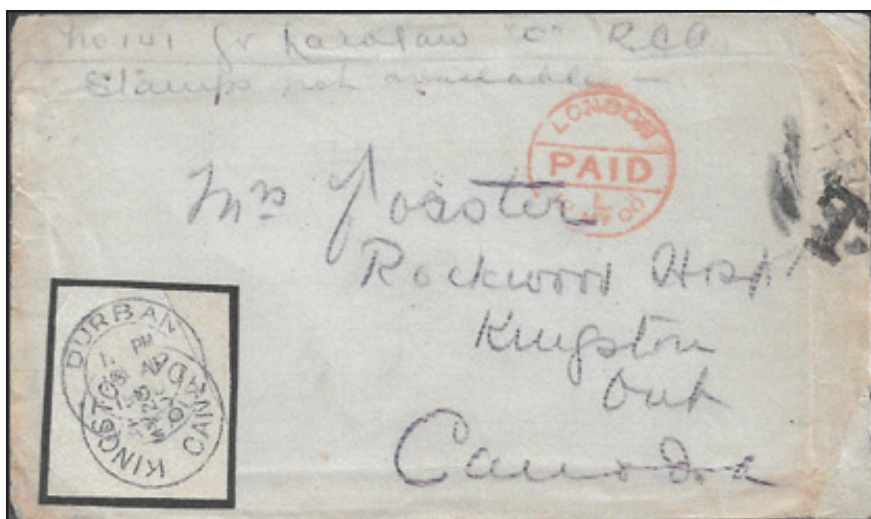 No 141 Gr "C" R.C.A.
Stamps not available —
LONDON
PAID
Mrs Fosster
Rockwood Hosp
Kingston
Ont
Canada
DURBAN
KINGSTON CANADA